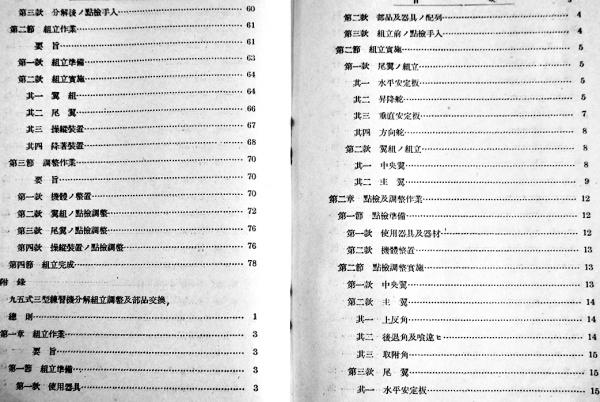 第三款 分解後ノ點檢手入 60
第二節 組立作業 61
要 旨 61
第一款 組立準備 63
第二款 組立實施 64
其一 翼 組 64
其二 尾 翼 66
其三 操縱裝置 67
其四 降著裝置 68
第三節 調整作業 70
要 旨 70
第一款 機體ノ整置 70
第二款 翼組ノ點檢調整 72
第三款 尾翼ノ點檢調整 76
第四款 操縱裝置ノ點檢調整 76
第四節 組立完成 78
附 錄
九五式三型練習機分解組立調整及部品交換
總 則 1
第一章 組立作業 3
要 旨 3
第一節 組立準備 3
第一款 使用器具 3
第二款 部品及器具ノ配列 4
第三款 組立前ノ點檢手入 4
第二節 組立實施 5
第一款 尾翼ノ組立 5
其一 水平安定板 5
其二 昇降舵 5
其三 垂直安定板 7
其四 方向舵 8
第二款 翼組ノ組立 8
其一 中央翼 8
其二 主 翼 9
第二章 點檢及調整作業 12
第一節 點檢準備 12
第一款 使用器具及器材 12
第二款 機體整置 13
第二節 點檢調整實施 13
第一款 中央翼 13
第二款 主 翼 14
其一 上反角 14
其二 後退角及喰違ヒ 14
其三 取附角 15
第三款 尾 翼 15
其一 水平安定板 15